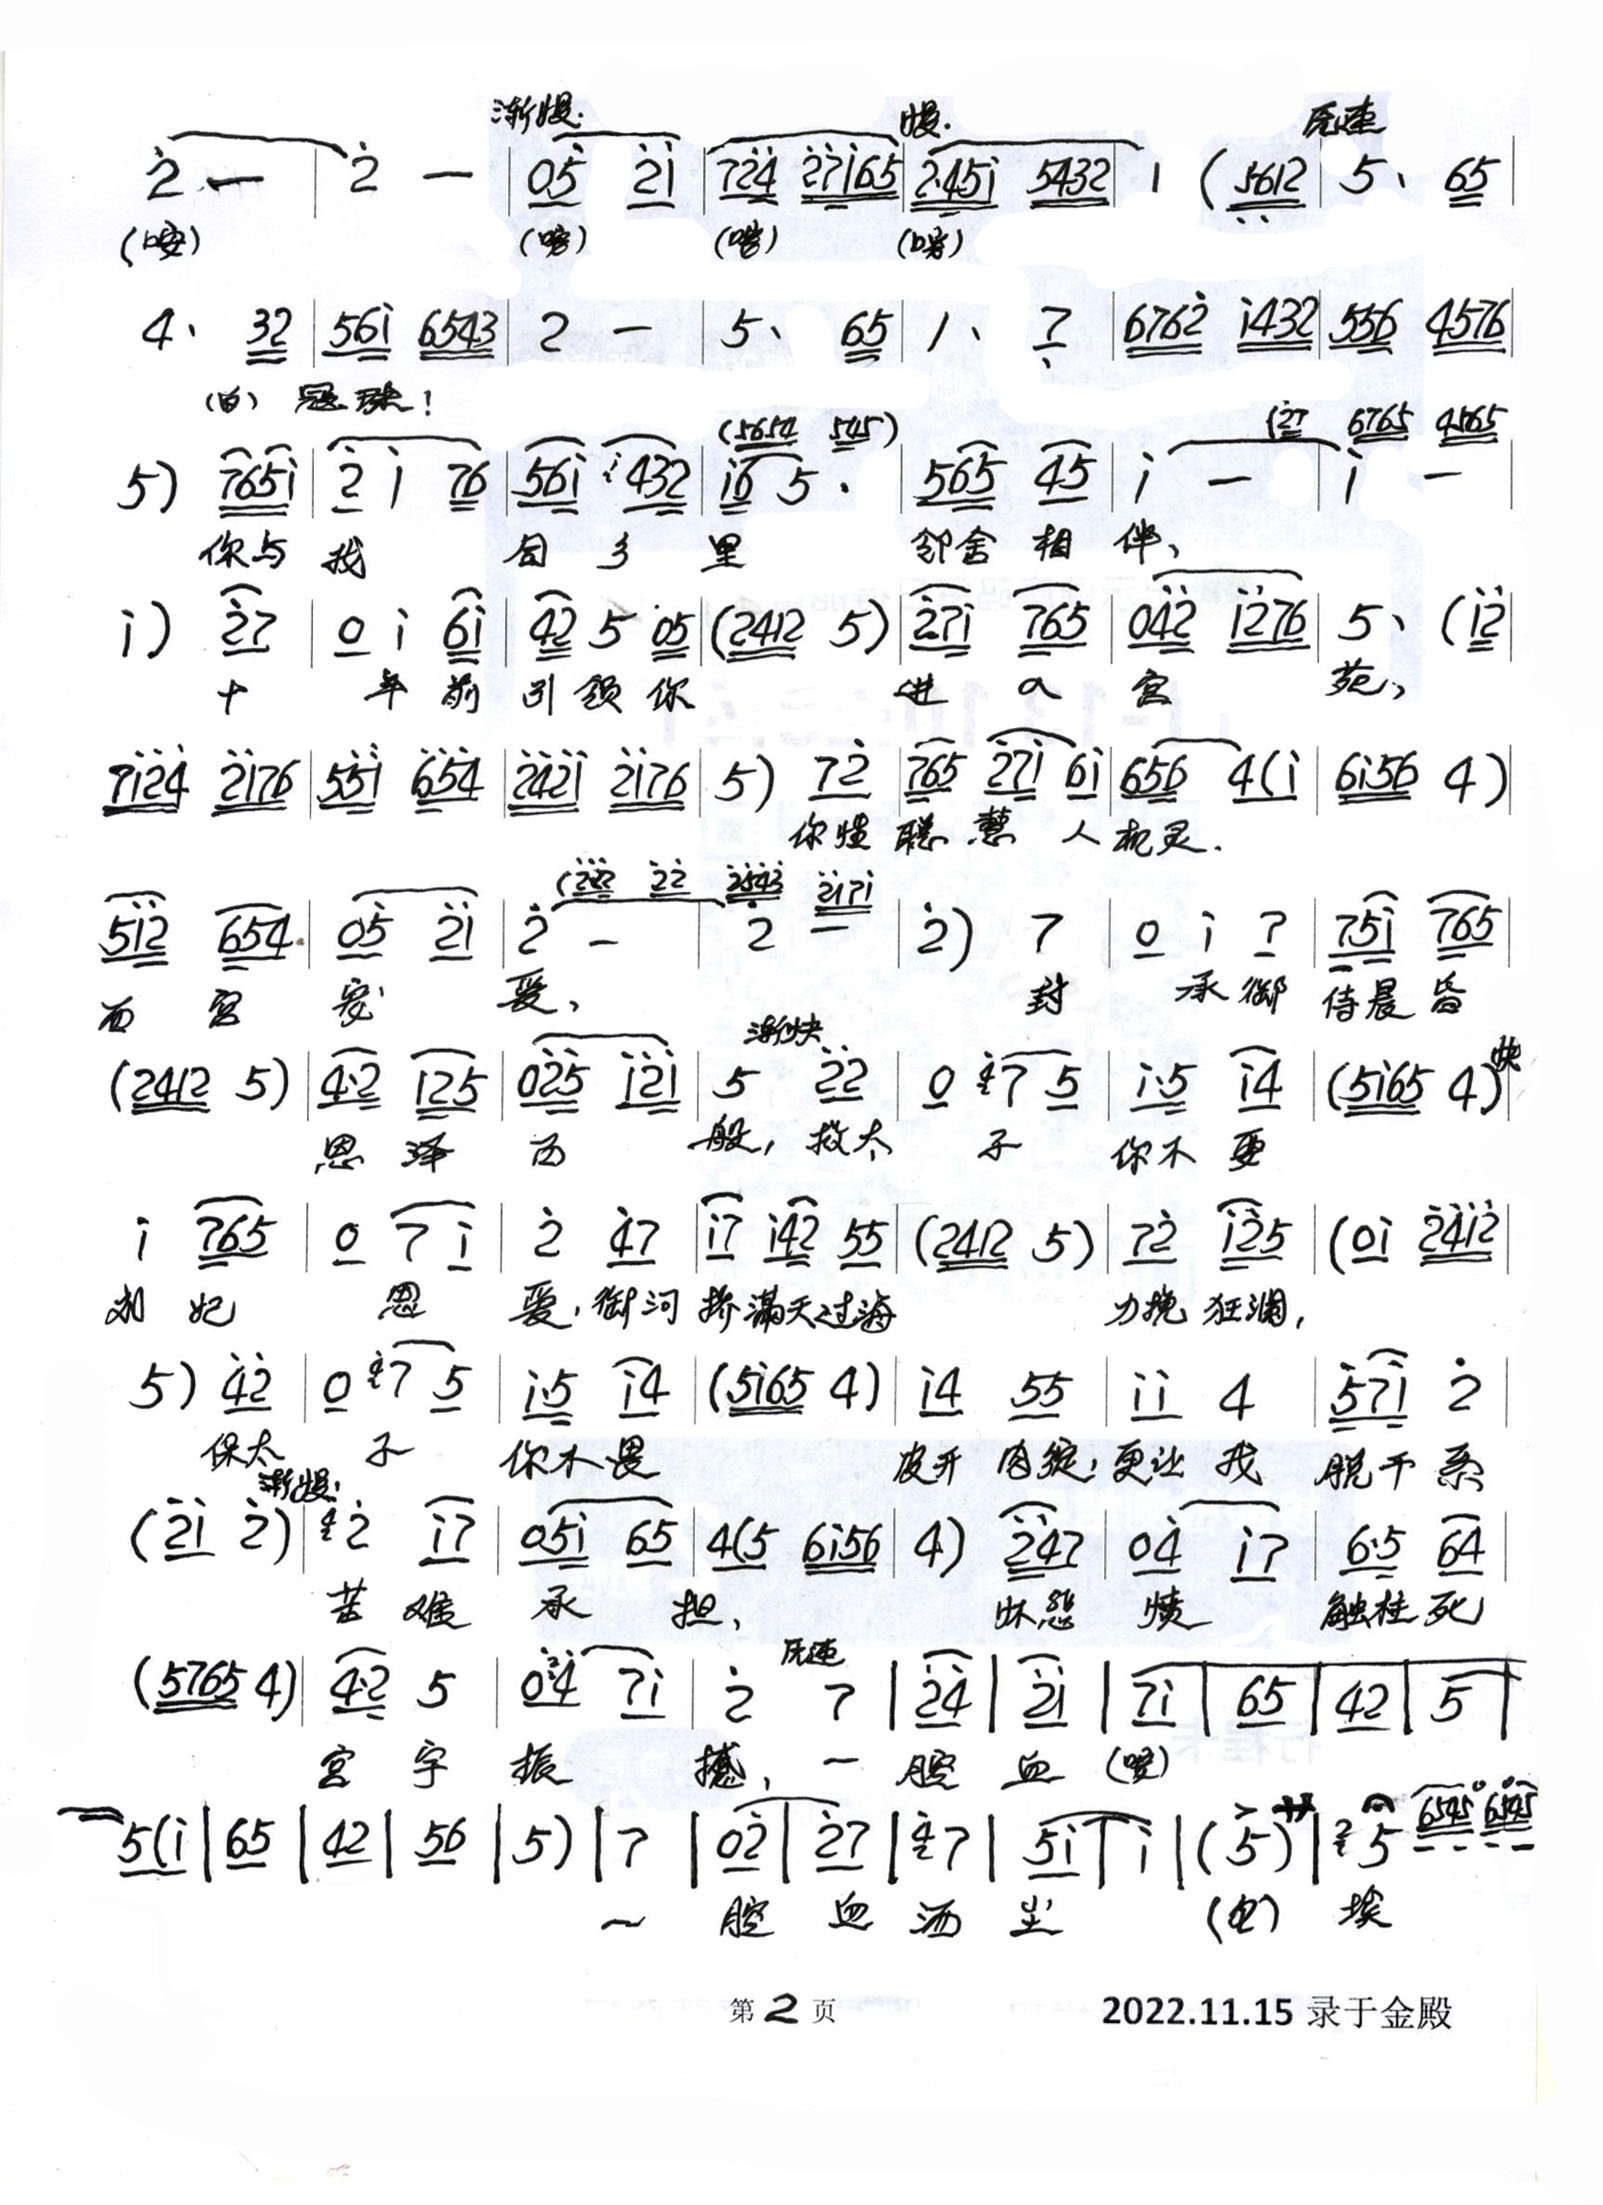 渐慢. 慢. 元速
2 — | 2 — | 05 21 | 724 27165 | 2·451 5432 | 1 ( 5612 | 5、 65 |
(哎)
4、 32 | 561 6543 | 2 — | 5、 65 | 1、 7 | 6762 1432 | 556 4576 |
(白) 寇珠!
(5654 545) (27 6765 4565
5) 7651 | 2 1 76 | 561 1432 | 16 5. | 565 45 | 1 — | 1 — |
你与我 同乡里 邻舍相伴、
1) 27 | 0 1 61 | 42 5 05 | (2412 5) | 271 765 | 042 1276 | 5、 (12
十年前引领你 进入宫苑,
7124 2176 | 551 654 | 2421 2176 | 5) 72 | 765 271 61 | 656 4(1 | 6156 4) |
你性聪慧人机灵.
(222 22 2543 2171
512 654 | 05 21 | 2 — | 2 — | 2) 7 | 0 1 7 | 751 765 |
西宫宠爱, 封承御侍晨昏
渐快 快
(2412 5) | 4·2 125 | 025 121 | 5 22 | 0 47 5 | 1·5 14 | (5165 4) |
恩泽百般,救太子你不要
1 765 | 0 7 1 | 2 47 | 17 142 55 | (2412 5) | 72 125 | (01 2412 |
刘妃恩爱,御河桥瞒天过海 力挽狂澜,
5) 42 | 0 47 5 | 1·5 14 | (5165 4) | 14 55 | 11 4 | 571 2 |
保太子你不畏 皮开肉绽;更让我脱干系
渐慢.
(21 2) | 42 17 | 051 65 | 4(5 6156 | 4) 247 | 04 17 | 6·5 64 |
苦难承担, 怀怨愤触柱死
元速
(5765 4) | 4·2 5 | 04 71 | 2 7 | 24 | 21 | 71 | 65 | 42 | 5 |
宫宇振撼,一腔血
5(1 | 65 | 42 | 56 | 5) | 7 | 02 | 27 | 47 | 51 | 1 | (5) | 5 6545 6545
一腔血洒尘 埃
第 2 页 2022.11.15 录于金殿